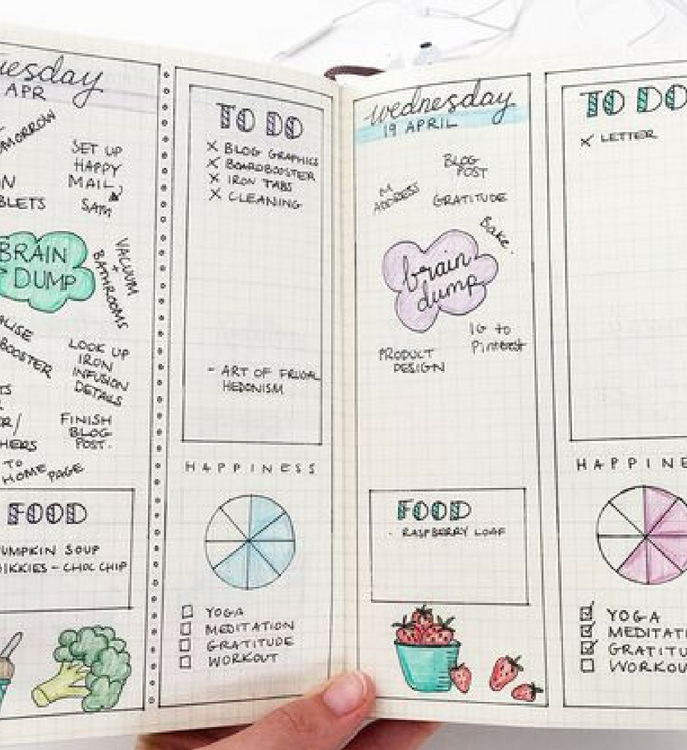 uesday
APR
OMORROW
SET UP
HAPPY
MAIL
SAM
BLETS
BRAIN
DUMP
VACUUM
+
BATHROOMS
ALISE
BOOSTER
LOOK UP
IRON
INFUSION
DETAILS
FINISH
BLOG
POST.
HERS
TO
HOME PAGE
FOOD
UMPKIN SOUP
IKKIES - CHOC CHIP
TO DO
X BLOG GRAPHICS
X BOARDBOOSTER
X IRON TABS
X CLEANING
- ART OF FRUGAL
HEDONISM
HAPPINESS
YOGA
MEDITATION
GRATITUDE
WORKOUT
wednesday
19 APRIL
BLOG
POST
M
ADDRESS
GRATITUDE
Bake.
brain
dump
IG to
Pinterest
PRODUCT
DESIGN
FOOD
- RASPBERRY LOAF
TO DO
X LETTER
HAPPINE
YOGA
MEDITATI
GRATITU
WORKOU